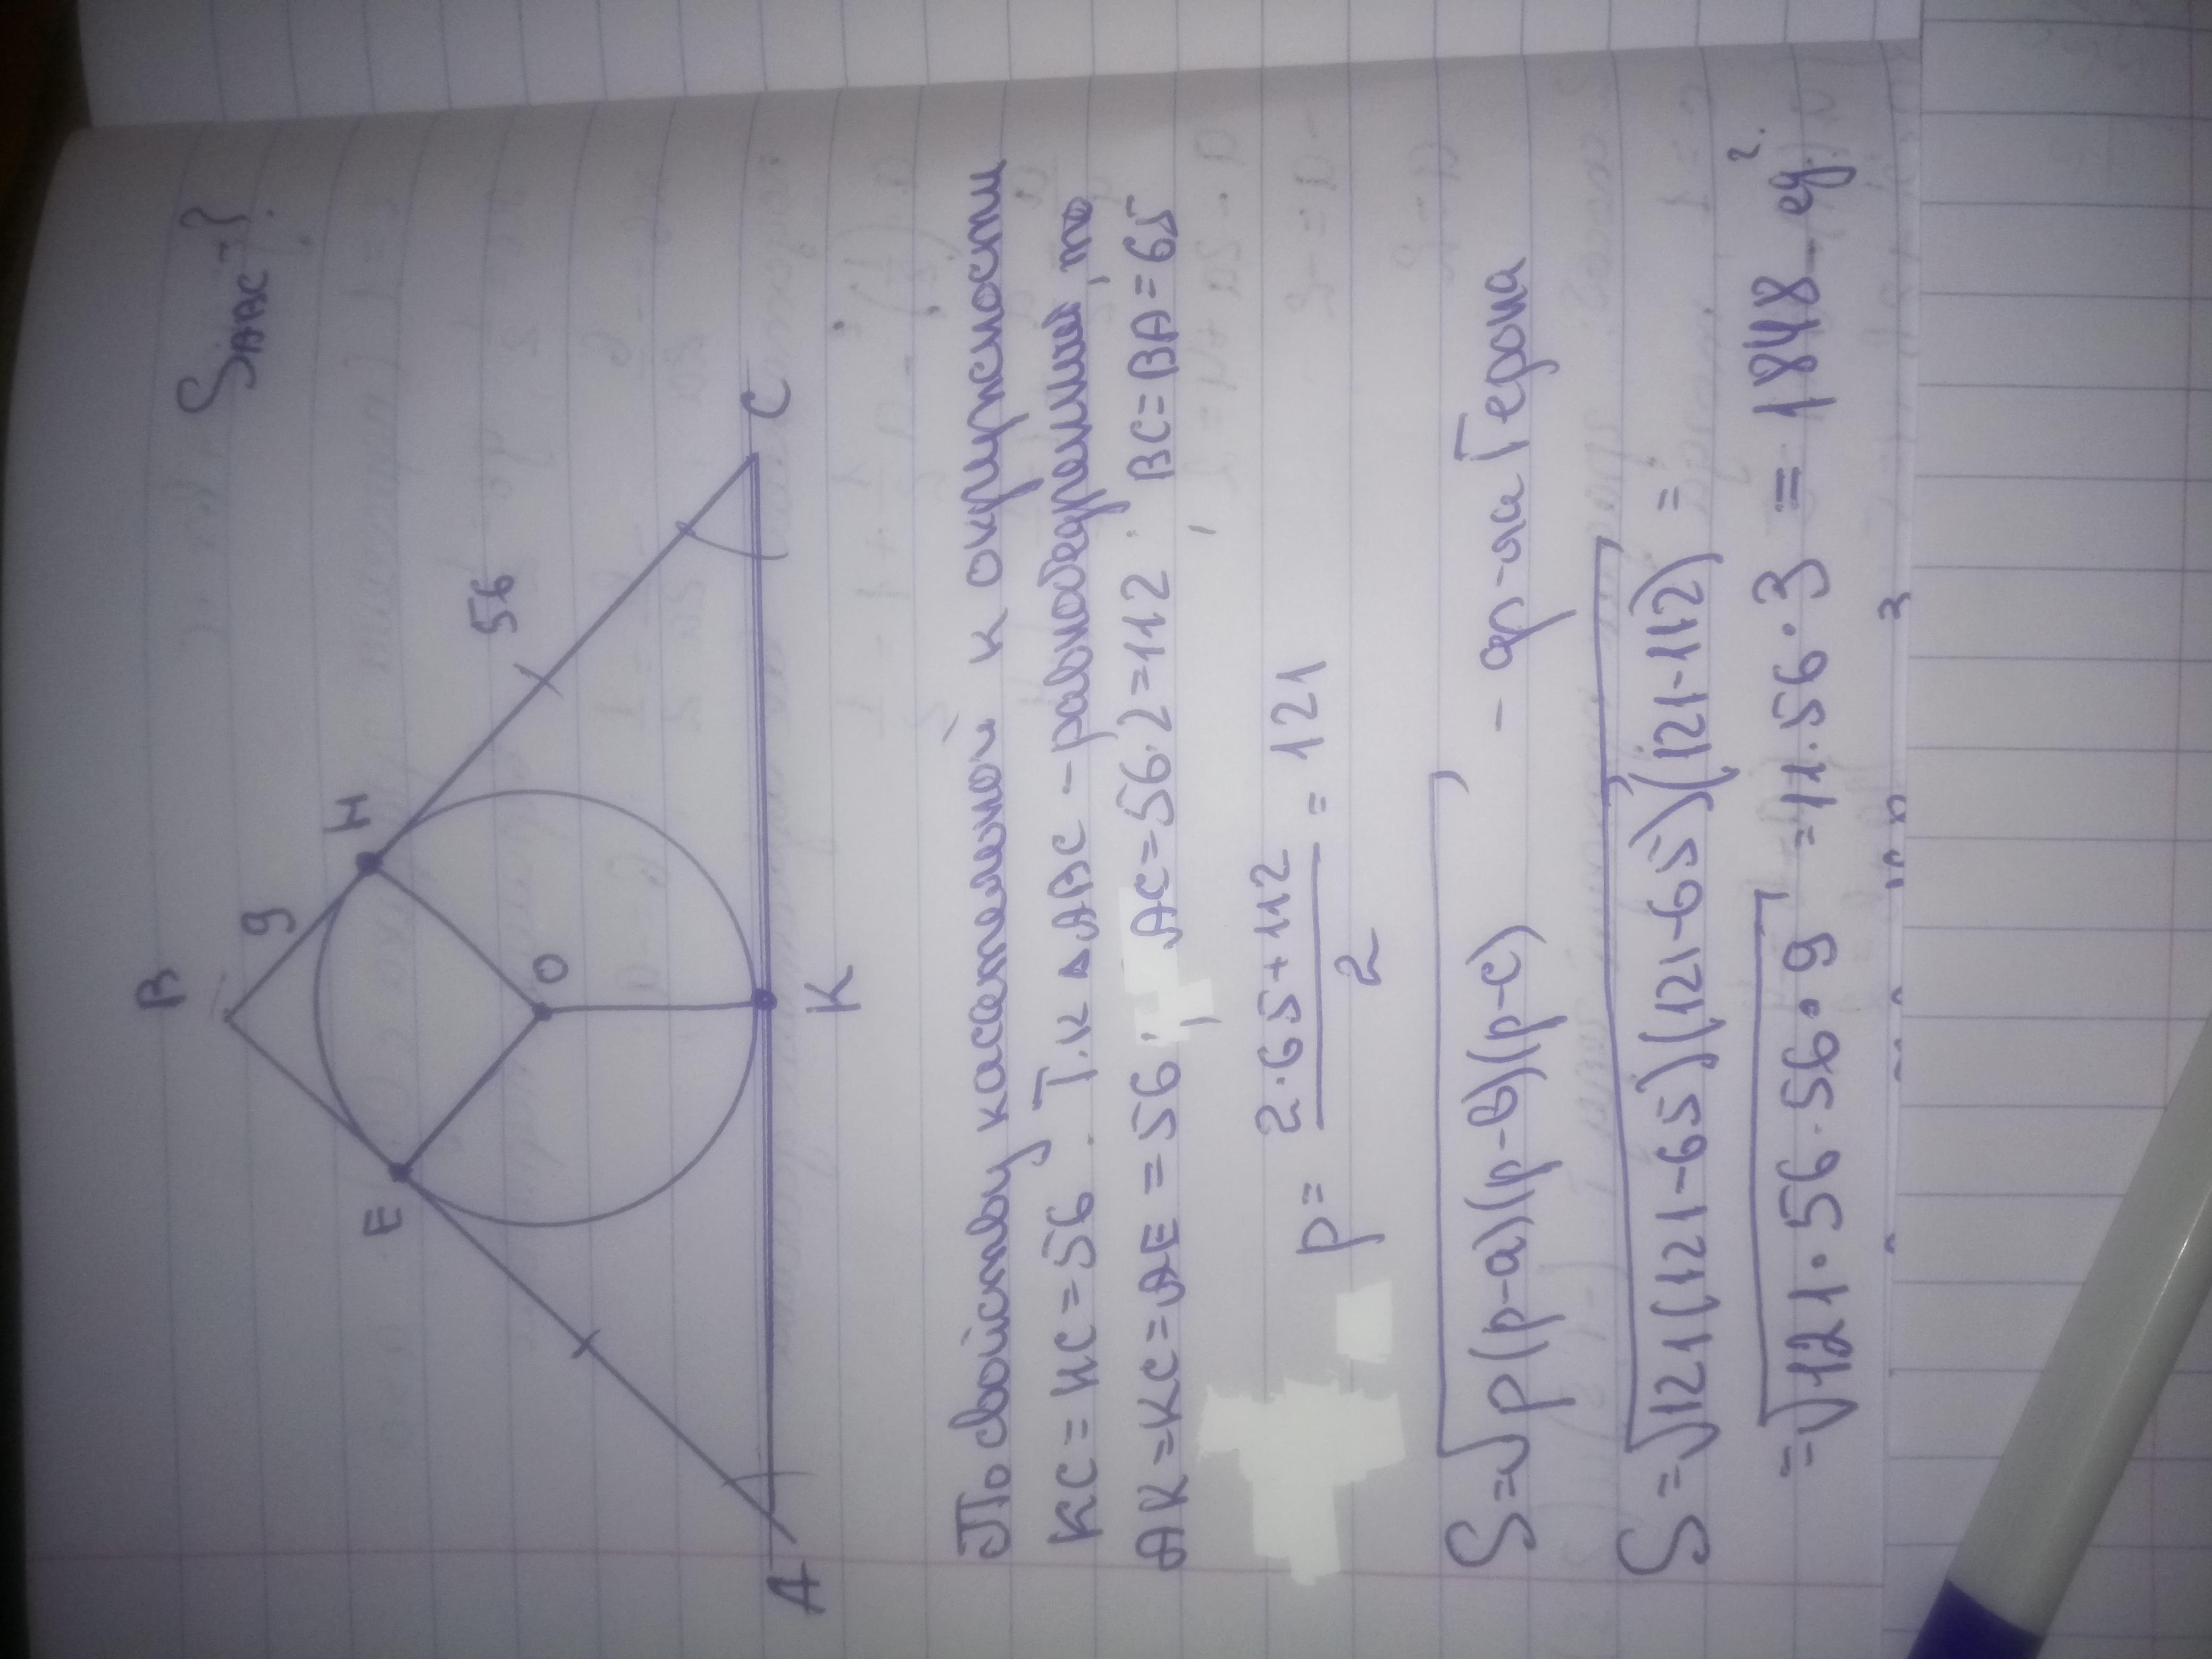 SABC-?
B
9
H
E
56
O
A
K
C
По свойству касательной к окружности
KC = HC = 56. Т.к ▲ABC - равнобедренный, то
AK = KC = AE = 56. AC = 56·2 = 112. BC = BA = 65
p = (2·65+112)/2 = 121
S = √p(p-a)(p-b)(p-c) - ф-ла Герона
S = √121(121-65)(121-65)(121-112) =
= √121·56·56·9 = 11·56·3 = 1848 ед².